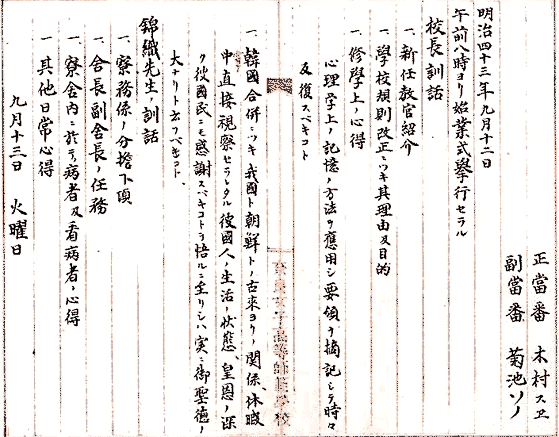 明治四十三年九月十二日
正當番　木村スヱ
副當番　菊池ソノ
午前八時ヨリ始業式擧行セラル
校長訓話
一、新任教官紹介
一、學校規則改正ニツキ其理由及目的
一、修學上ノ心得
心理學上ノ記憶ノ方法ヲ應用シ要領ヲ摘記シテ時々
反復スベキコト
奈良女子高等師範學校
一、韓國合併ニツキ我國ト朝鮮トノ古來ヨリノ關係、休暇
中直接視察セラレタル彼國人ノ生活ノ狀態、皇恩ノ深
ク彼國民ニモ感謝スベキコトヲ悟ルニ至リシハ実ニ御聖德ノ
大ナリト云フベキコト、
錦織先生ノ訓話
一、寮務係ノ分擔下項
一、舍長副舍長ノ任務
一、寮舍內ニ於テノ病者及看病者ノ心得
一　其他日常心得
九月十三日　火曜日